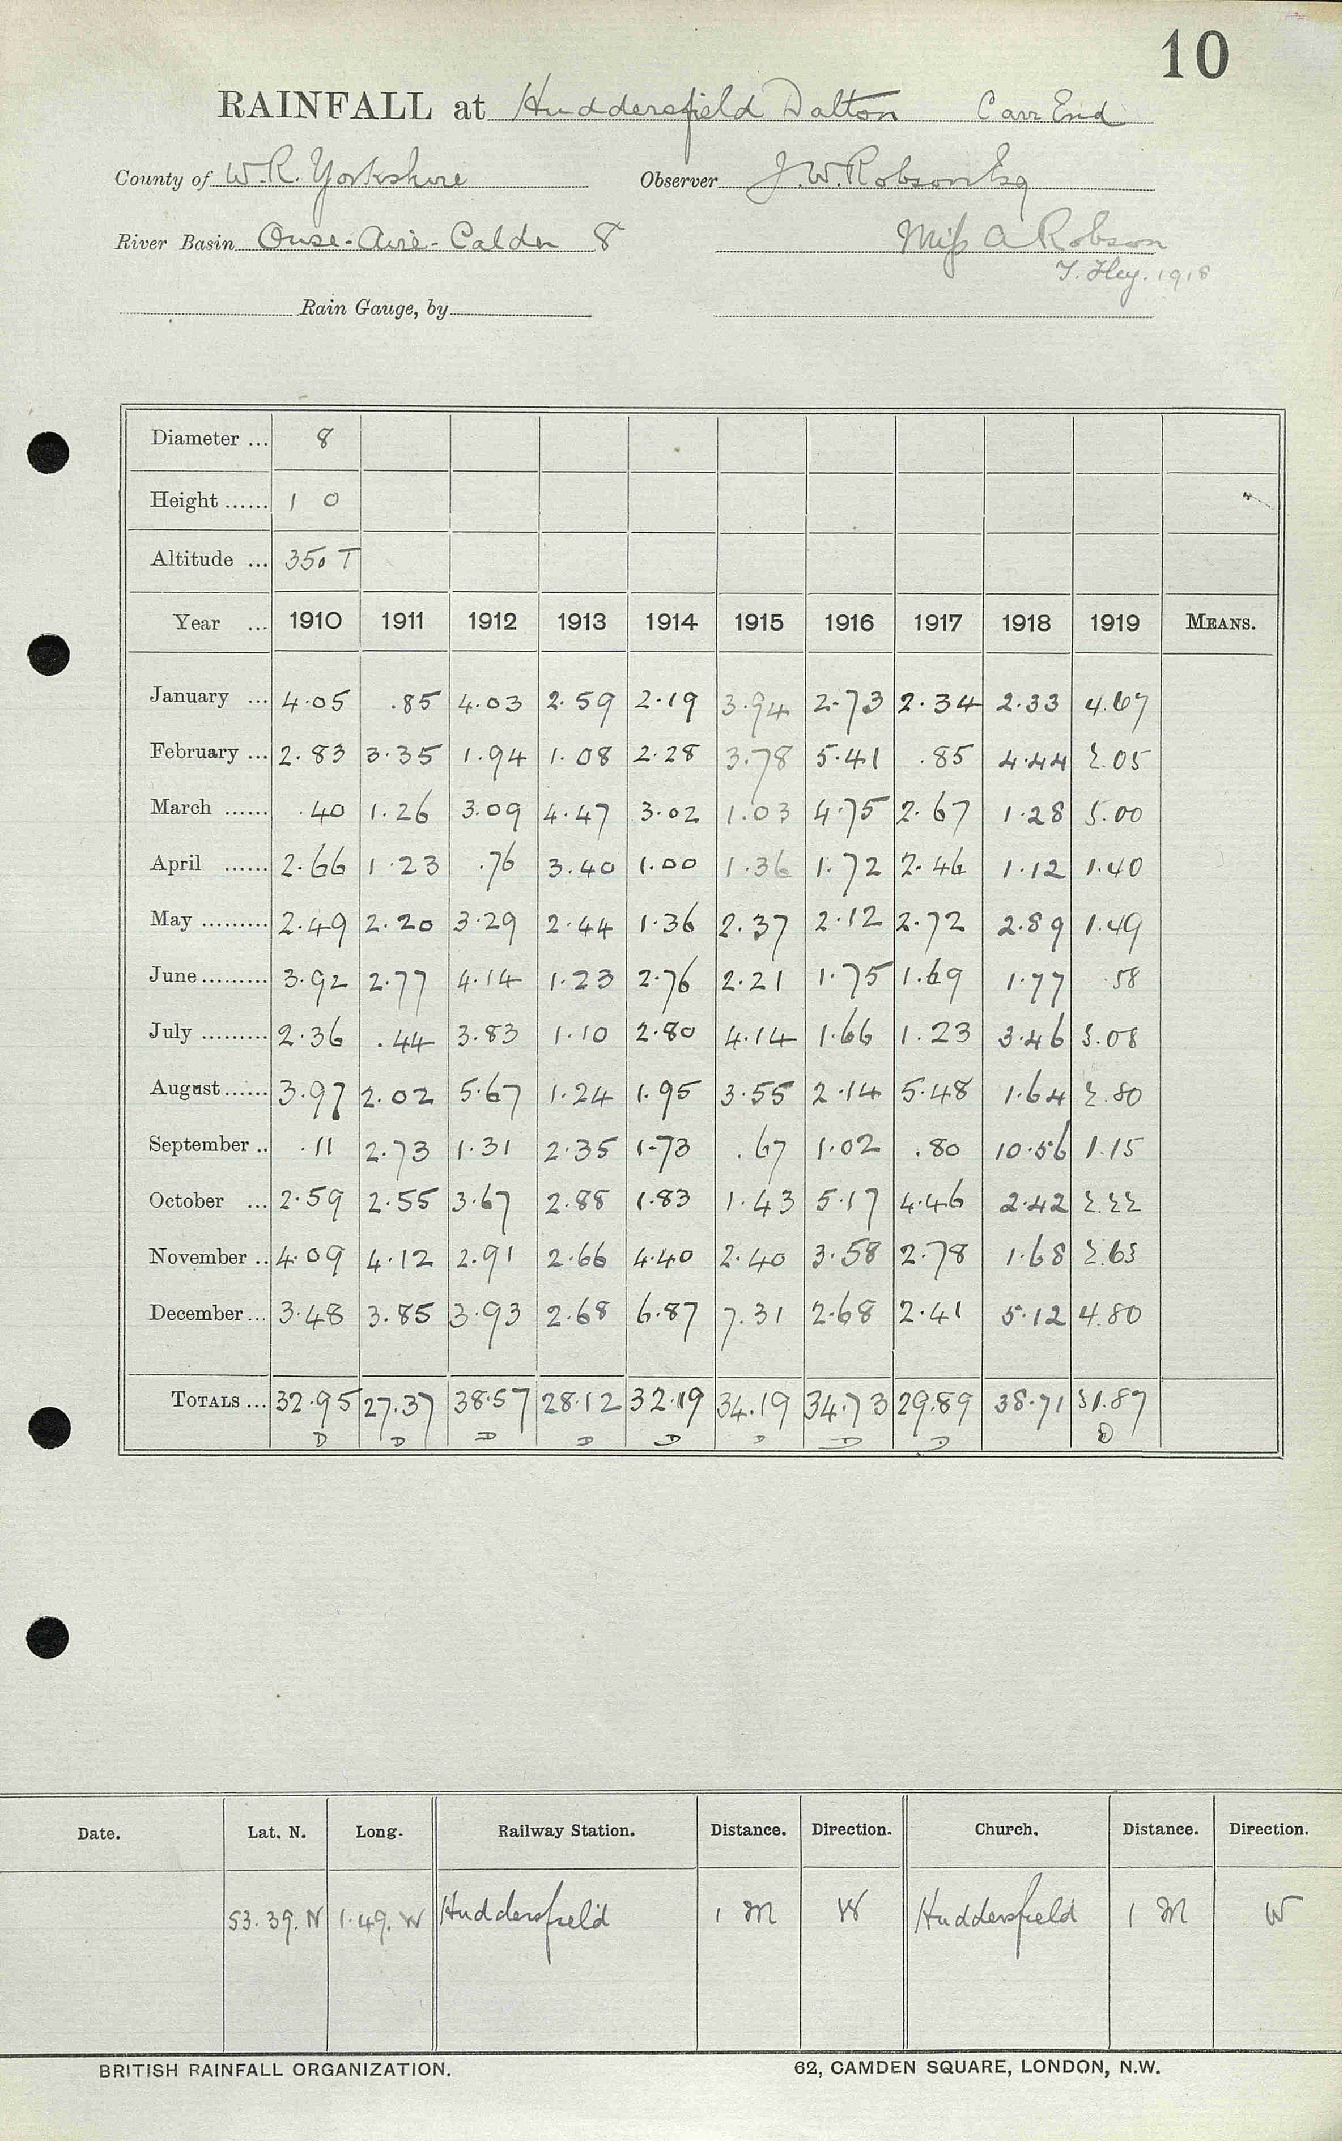 10
RAINFALL at Huddersfield Dalton Carr End
County of W.R. Yorkshire Observer J.W. Robson Esq
River Basin Ouse-Aire-Calder 8 Miss A Robson
T. Hey. 1918
Rain Gauge, by
Diameter ... 8
Height ...... 1 0
Altitude ... 350 T
Year ... 1910 1911 1912 1913 1914 1915 1916 1917 1918 1919 MEANS.
January ... 4.05 .85 4.03 2.59 2.19 3.94 2.73 2.34 2.33 4.67
February ... 2.83 3.35 1.94 1.08 2.28 3.78 5.41 .85 4.44 2.05
March ...... .40 1.26 3.09 4.47 3.02 1.03 4.75 2.67 1.28 5.00
April ...... 2.66 1.23 .76 3.40 1.00 1.36 1.72 2.46 1.12 1.40
May ......... 2.49 2.20 3.29 2.44 1.36 2.37 2.12 2.72 2.89 1.49
June ......... 3.92 2.77 4.14 1.23 2.76 2.21 1.75 1.69 1.77 .58
July ......... 2.36 .44 3.83 1.10 2.80 4.14 1.66 1.23 3.46 3.08
August ...... 3.97 2.02 5.67 1.24 1.95 3.55 2.14 5.48 1.64 2.80
September .. .11 2.73 1.31 2.35 1.73 .67 1.02 .80 10.56 1.15
October ... 2.59 2.55 3.67 2.88 1.83 1.43 5.17 4.46 2.42 2.22
November .. 4.09 4.12 2.91 2.66 4.40 2.40 3.58 2.78 1.68 2.63
December ... 3.48 3.85 3.93 2.68 6.87 7.31 2.68 2.41 5.12 4.80
TOTALS ... 32.95 27.37 38.57 28.12 32.19 34.19 34.73 29.89 38.71 31.87
D D D D D D D D D
Date. Lat. N. Long. Railway Station. Distance. Direction. Church. Distance. Direction.
53.39.N 1.49.W Huddersfield 1 M W Huddersfield 1 M W
BRITISH RAINFALL ORGANIZATION. 62, CAMDEN SQUARE, LONDON, N.W.